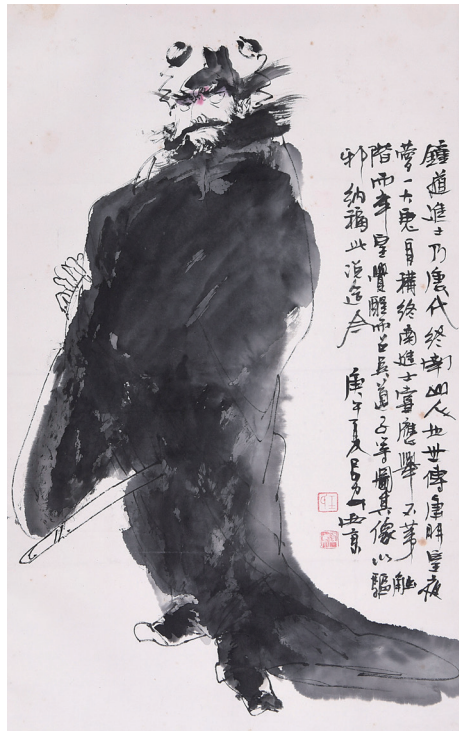 鍾馗進士乃唐代終南山人也世傳唐明皇夜
夢一大鬼自稱終南進士嘗應舉不第觸
階而卒皇覺醒而召吳道子等圖其像以驅
邪納福此
庚午夏 西京